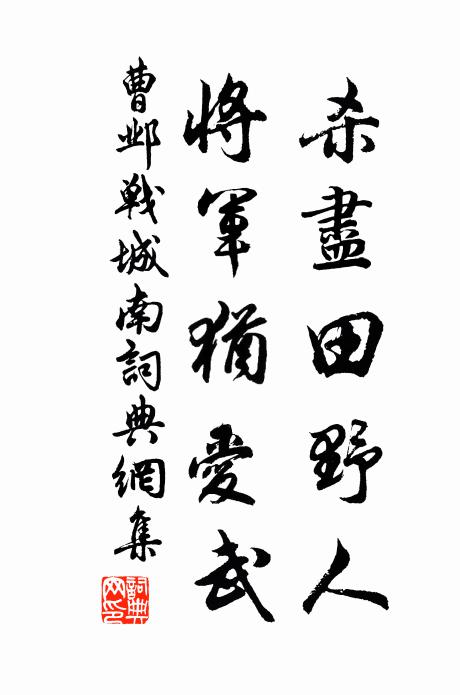 杀盡田野人
將軍猶愛武
曹邺戦城南詞典網集
詞典网印